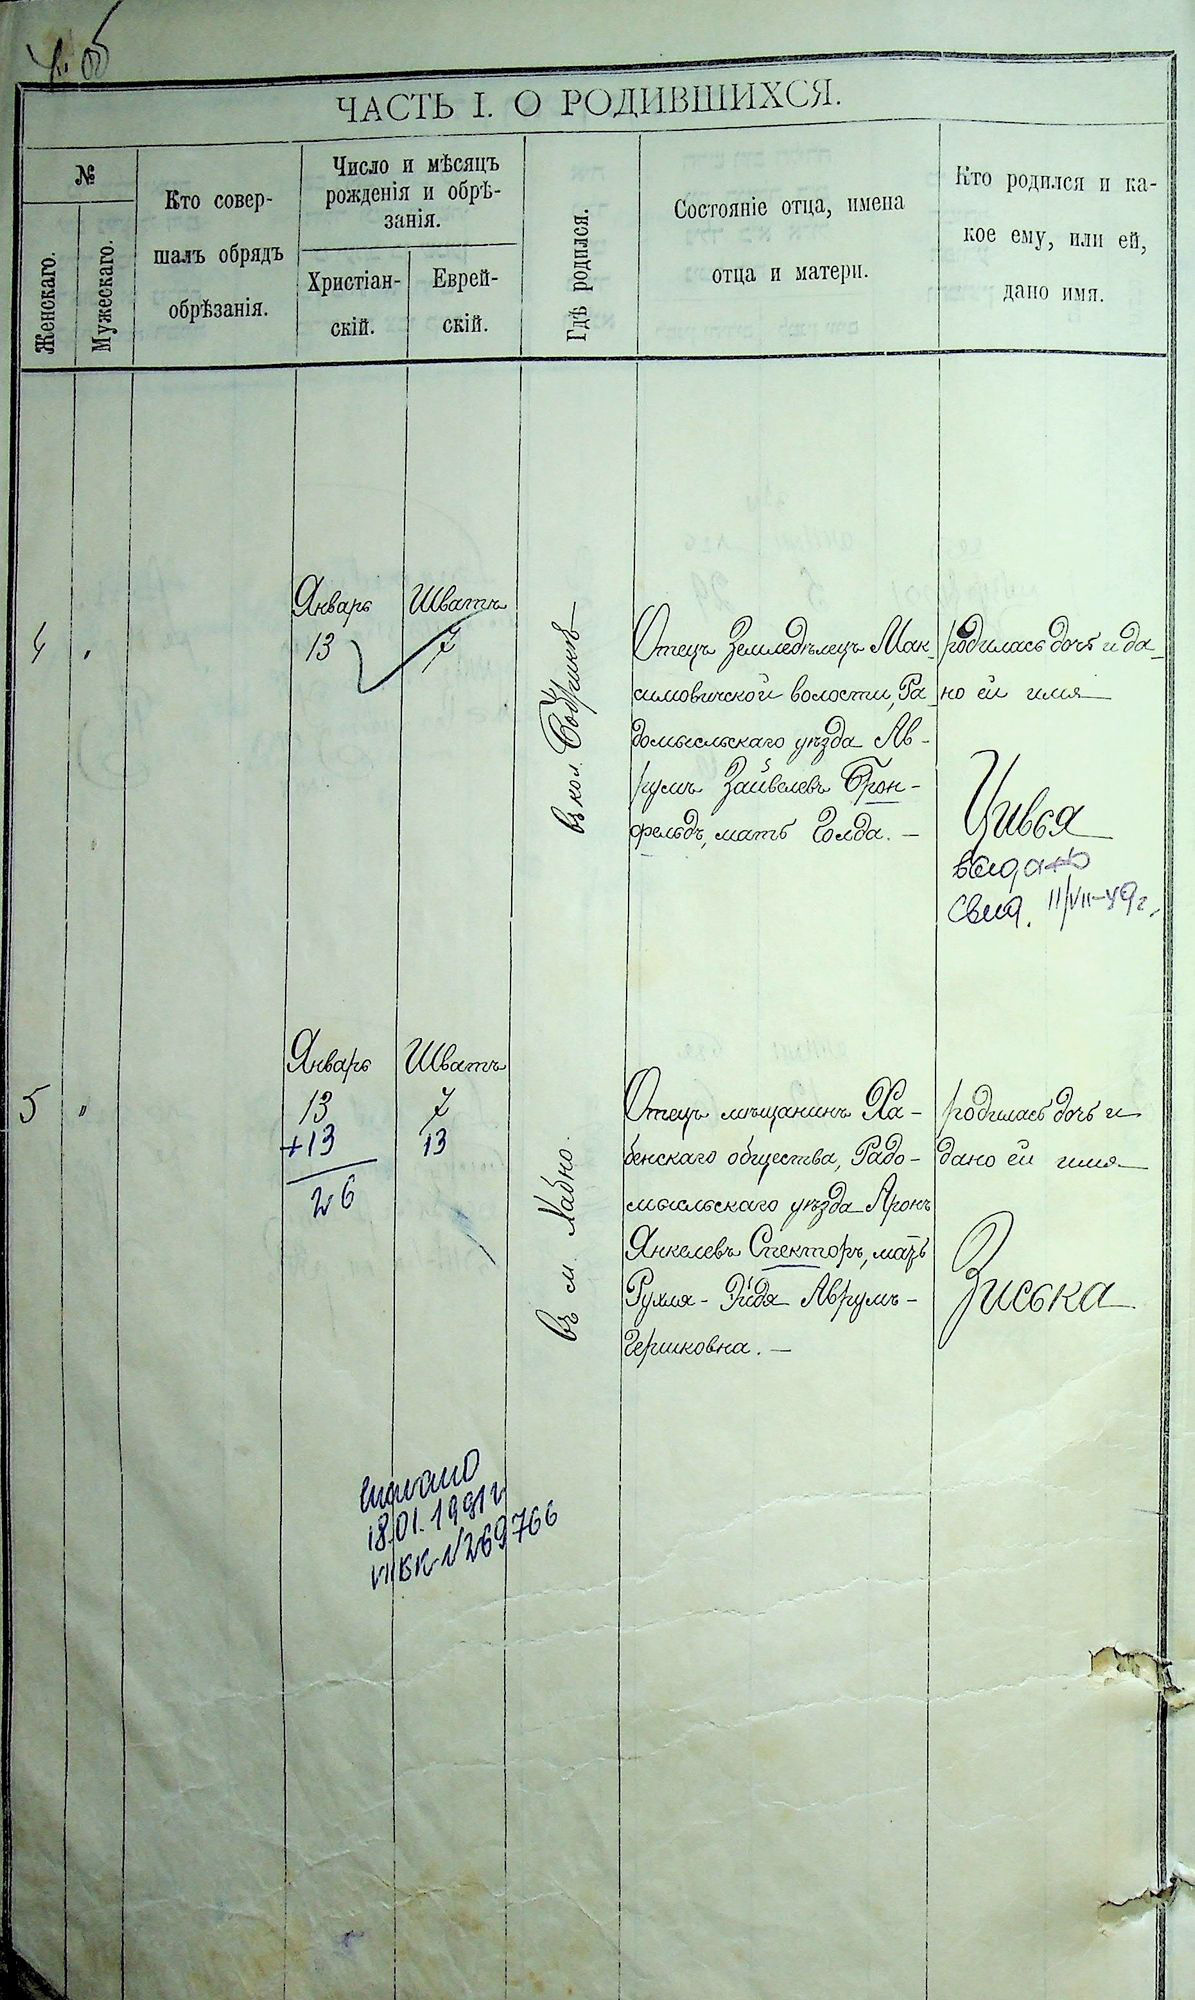 ЧАСТЬ I. О РОДИВШИХСЯ.
№
Женскаго.
Мужескаго.
Кто совер-
шалъ обрядъ
обрѣзанія.
Число и мѣсяцъ
рожденія и обрѣ-
занія.
Христіан-
скій.
Еврей-
скій.
Гдѣ родился.
Состояніе отца, имена
отца и матери.
Кто родился и ка-
кое ему, или ей,
дано имя.
4
"
Январь
13
Шватъ
7
въ кол.
Отецъ Земледѣлецъ Мак-
симовичской волости, Ра-
домысльскаго уѣзда Ав-
румъ Зайвелевъ Брон-
фельдъ, мать Голда. —
родилась дочь и да-
но ей имя
Цивья
выдано
свид. 11/VII-49г.
5
"
Январь
13
+13
26
Шватъ
7
13
въ м. Хабно.
Отецъ мѣщанинъ Ха-
бенскаго общества, Радо-
мысльскаго уѣзда Аронъ
Янкелевъ Спекторъ, мать
Рухля-Эйдя Аврумъ-
Гершковна. —
родилась дочь и
дано ей имя
Зиська
18.01.1991г
№269766